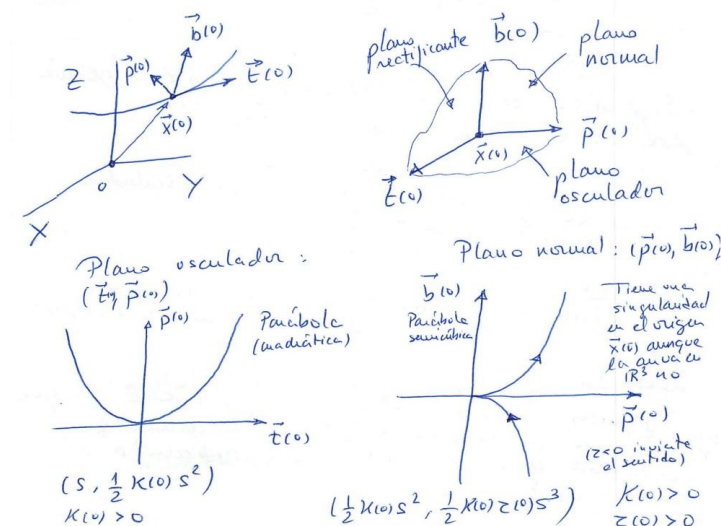 Z
p⃗(0)
b⃗(0)
t⃗(0)
x⃗(0)
0
Y
X
plano
rectificante
b⃗(0)
plano
normal
x⃗(0)
p⃗(0)
t⃗(0)
plano
osculador
Plano osculador :
(t⃗(0), p⃗(0))
p⃗(0)
Parábola
(cuadrática)
t⃗(0)
(s, ½ K(0) s²)
K(0) > 0
Plano normal : (p⃗(0), b⃗(0))
b⃗(0)
Parábola
semicúbica
Tiene una
singularidad
en el origen
x⃗(0) aunque
la curva en
ℝ³ no
p⃗(0)
(τ<0 invierte
el sentido)
(½ K(0) s², ½ K(0) τ(0) s³)
K(0) > 0
τ(0) > 0